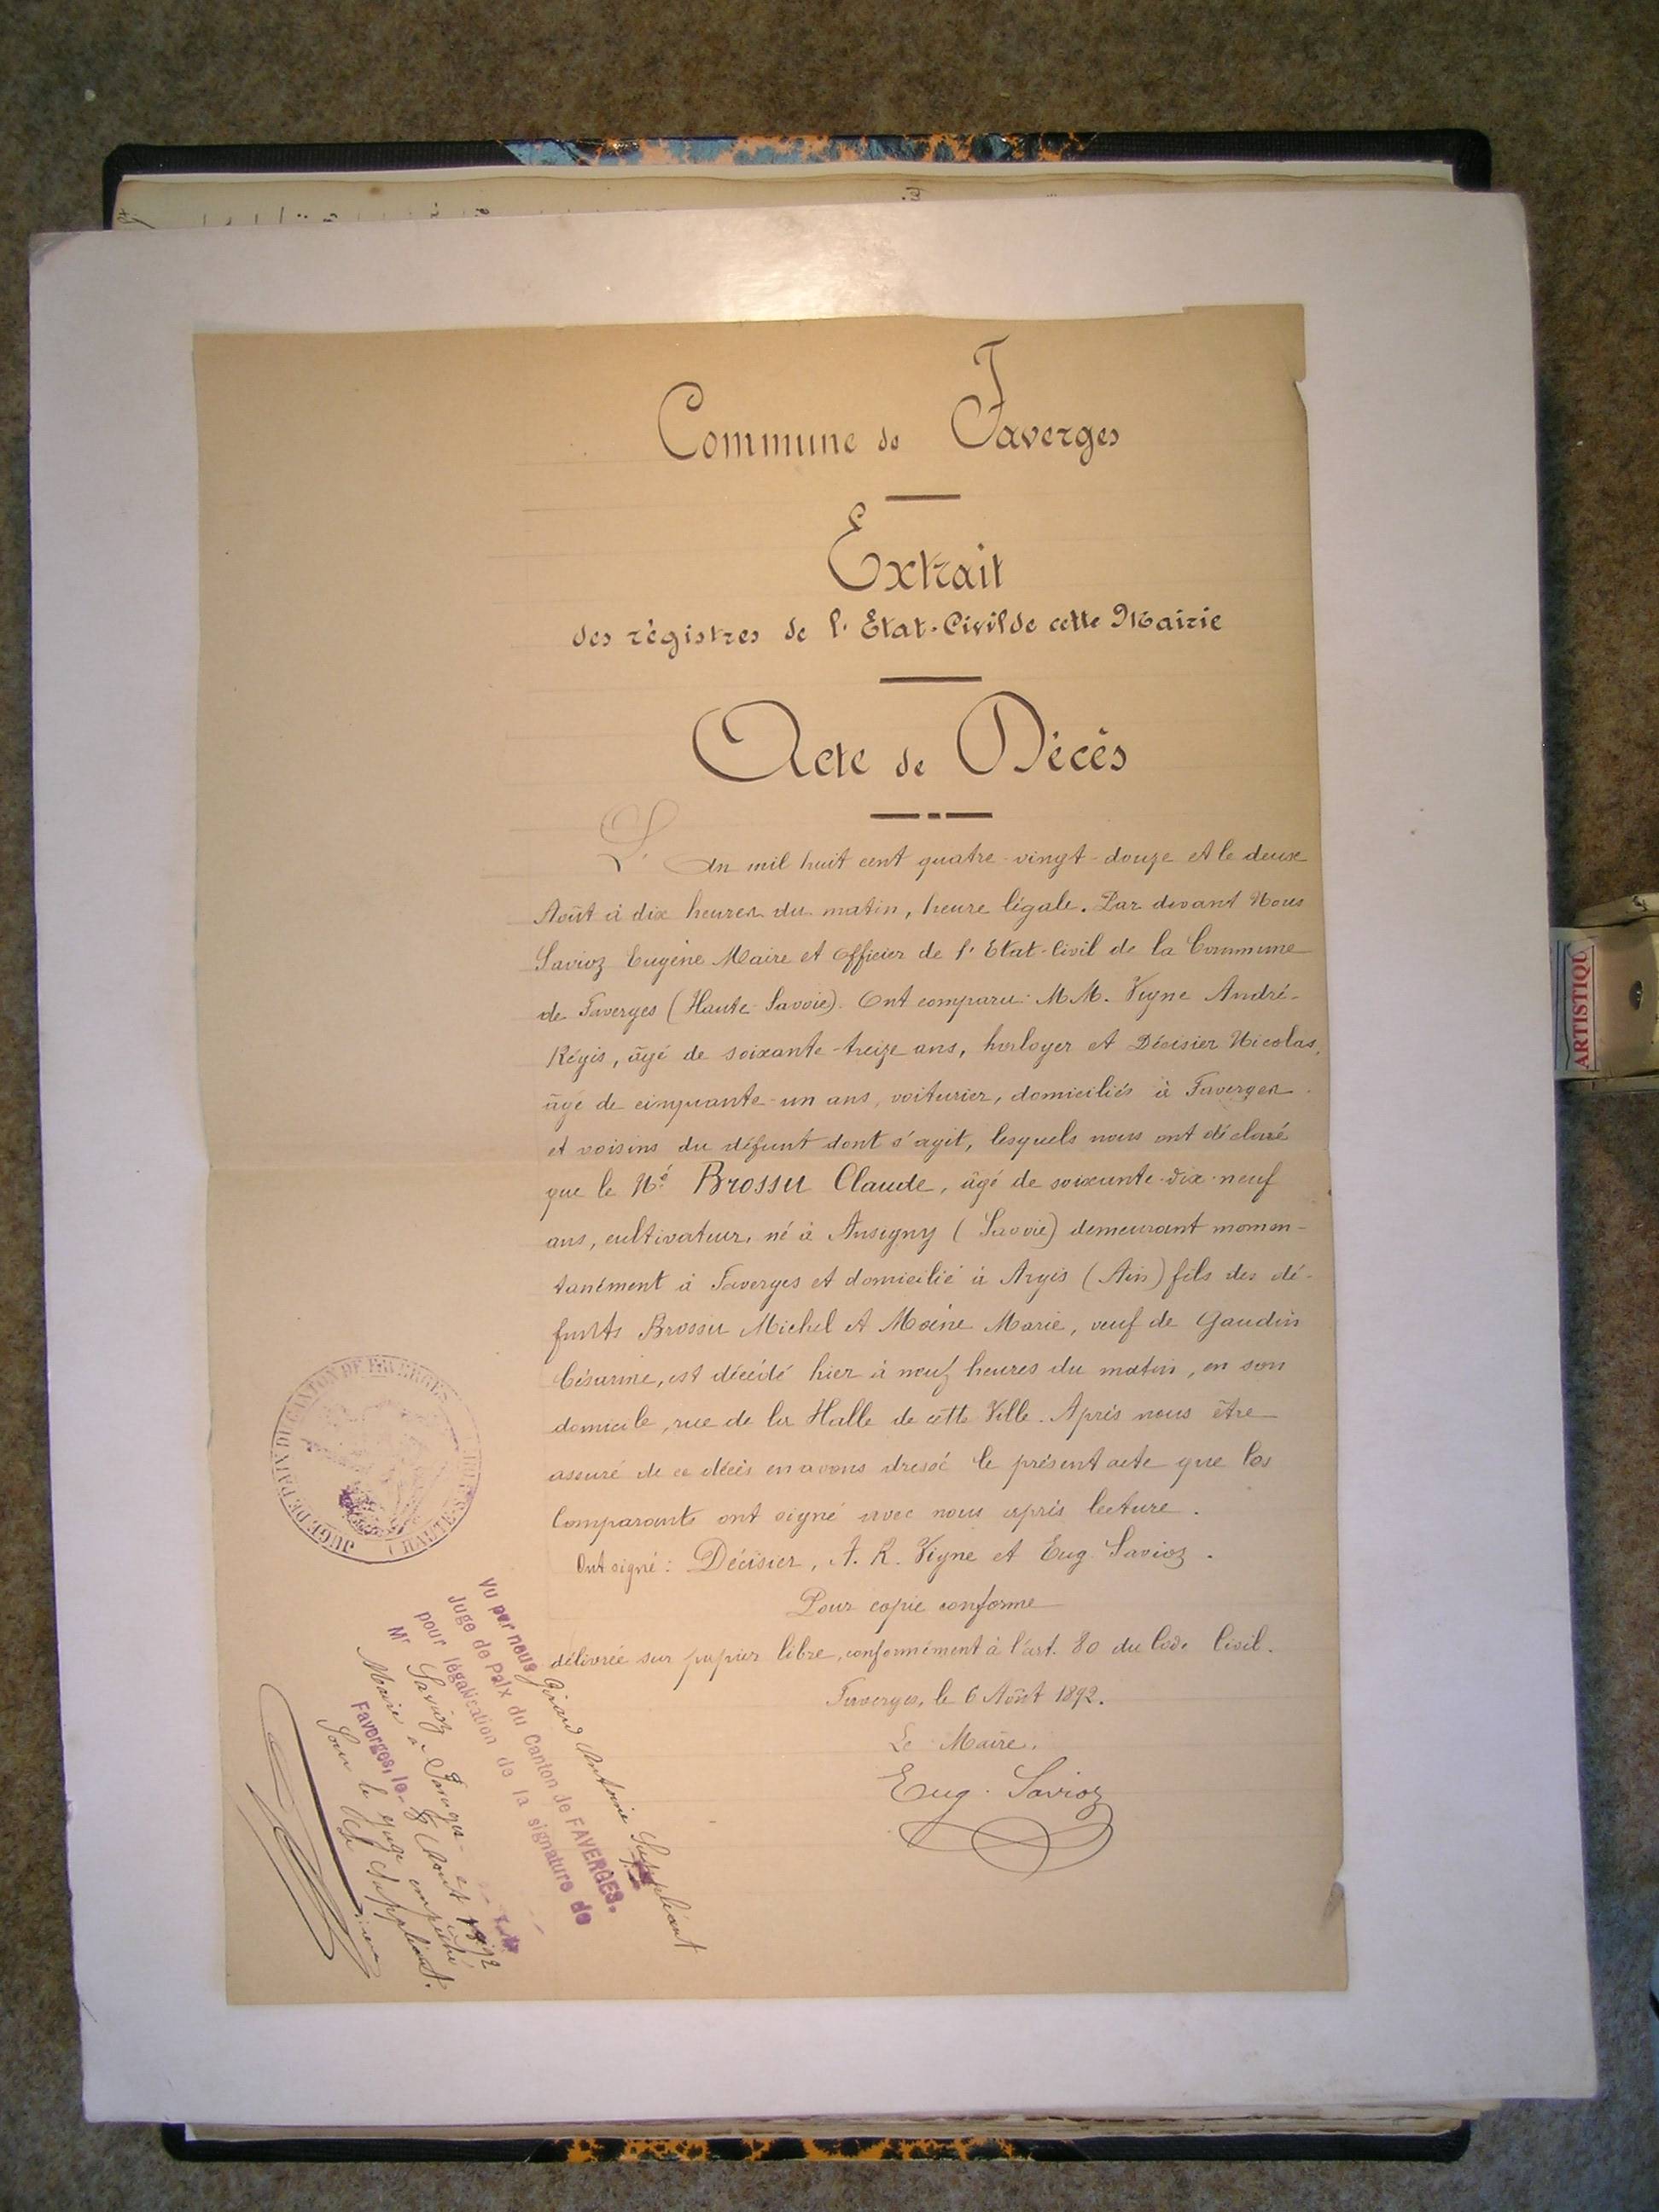 Commune de Faverges
Extrait
des règistres de l'Etat-Civil de cette Mairie
Acte de Décès
L'an mil huit cent quatre-vingt-douze et le deux
Août à dix heures du matin, heure légale. Par devant Nous
Savioz Eugène Maire et Officier de l'Etat-Civil de la Commune
de Faverges (Haute-Savoie). Ont comparu: MM. Vigne André-
Régis, âgé de soixante-treize ans, horloger et Décisier Nicolas,
âgé de cinquante-un ans, voiturier, domiciliés à Faverges
et voisins du défunt dont s'agit, lesquels nous ont déclaré
que le Né Brossu Claude, âgé de soixante-dix-neuf
ans, cultivateur, né à Ansigny (Savoie) demeurant momen-
tanément à Faverges et domicilié à Argis (Ain) fils des dé-
funts Brossu Michel et Moine Marie, veuf de Gaudin
Césarine, est décédé hier à neuf heures du matin, en son
domicile, rue de la Halle de cette Ville. Après nous être
assuré de ce décès en avons dressé le présent acte que les
Comparants ont signé avec nous après lecture.
Ont signé: Décisier, A. R. Vigne et Eug. Savioz.
Pour copie conforme
délivrée sur papier libre, conformément à l'art. 80 du Code Civil.
Faverges, le 6 Août 1892.
Le Maire.
Eug. Savioz
JUGE DE PAIX DU CANTON DE FAVERGES
(HAUTE-SAVOIE)
Vu par nous Girard Antoine Suppléant
Juge de Paix du Canton de FAVERGES.
pour légalisation de la signature de
Mr Savioz
Maire à Faverges
Faverges, le 8 Août 1892
Pour le Juge empêché
Le Suppléant.
ARTISTIQU